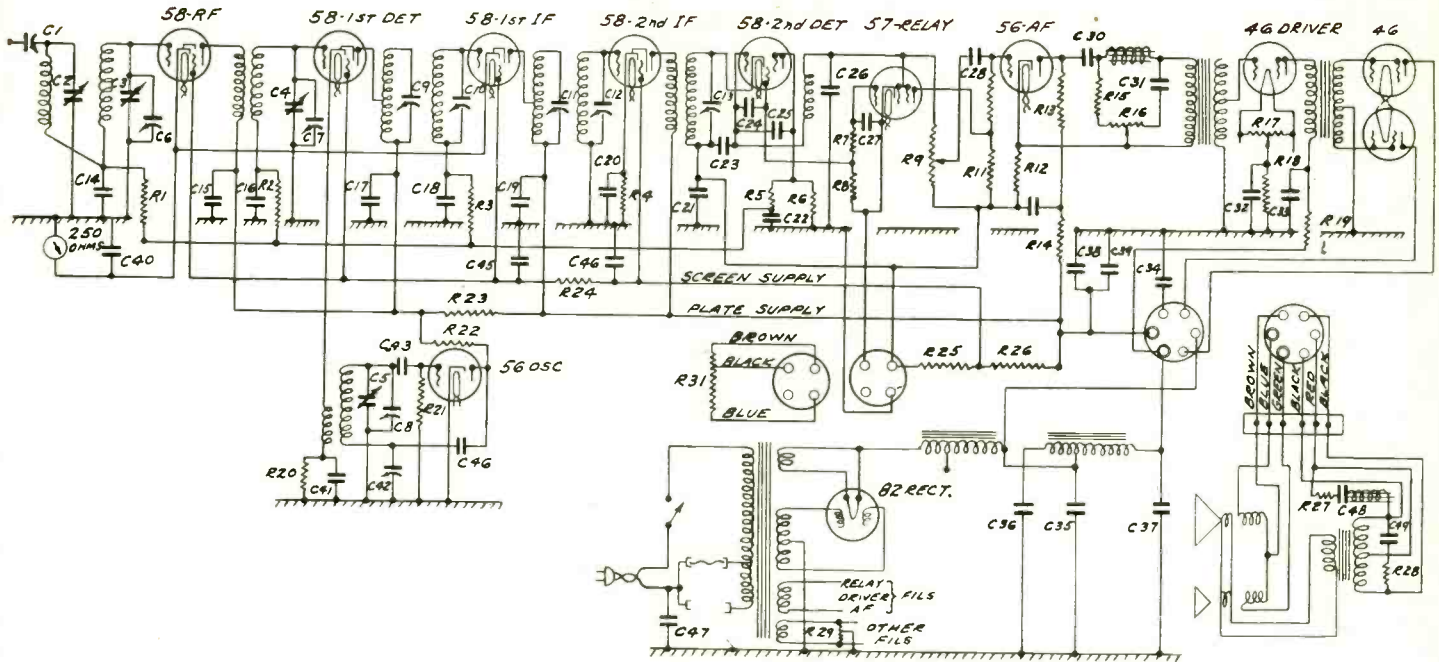 58-RF
58-1st DET
58-1st IF
58-2nd IF
58-2nd DET
57-RELAY
56-AF
46 DRIVER
46
C1
C2
C3
C6
C4
C7
C9
C10
C11
C12
C13
C24
C25
C26
R7
C27
C28
R13
C30
C31
R15
R16
R17
C14
R1
C15
C16
R2
C17
C18
R3
C19
C20
R4
C21
C23
R5
C22
R6
R8
R9
R11
R12
R14
C32
R18
C33
R19
250
OHMS
C40
C45
C46
R24
SCREEN SUPPLY
C38
C39
C34
R23
PLATE SUPPLY
R22
C43
56 OSC
C5
C8
R21
C46
R20
C41
C42
BROWN
BLACK
R31
BLUE
R25
R26
BROWN
BLUE
GREEN
BLACK
RED
BLACK
82 RECT.
C36
C35
C37
R27
C48
C49
R28
RELAY
DRIVER } FILS
AF
R29
OTHER
FILS
C47